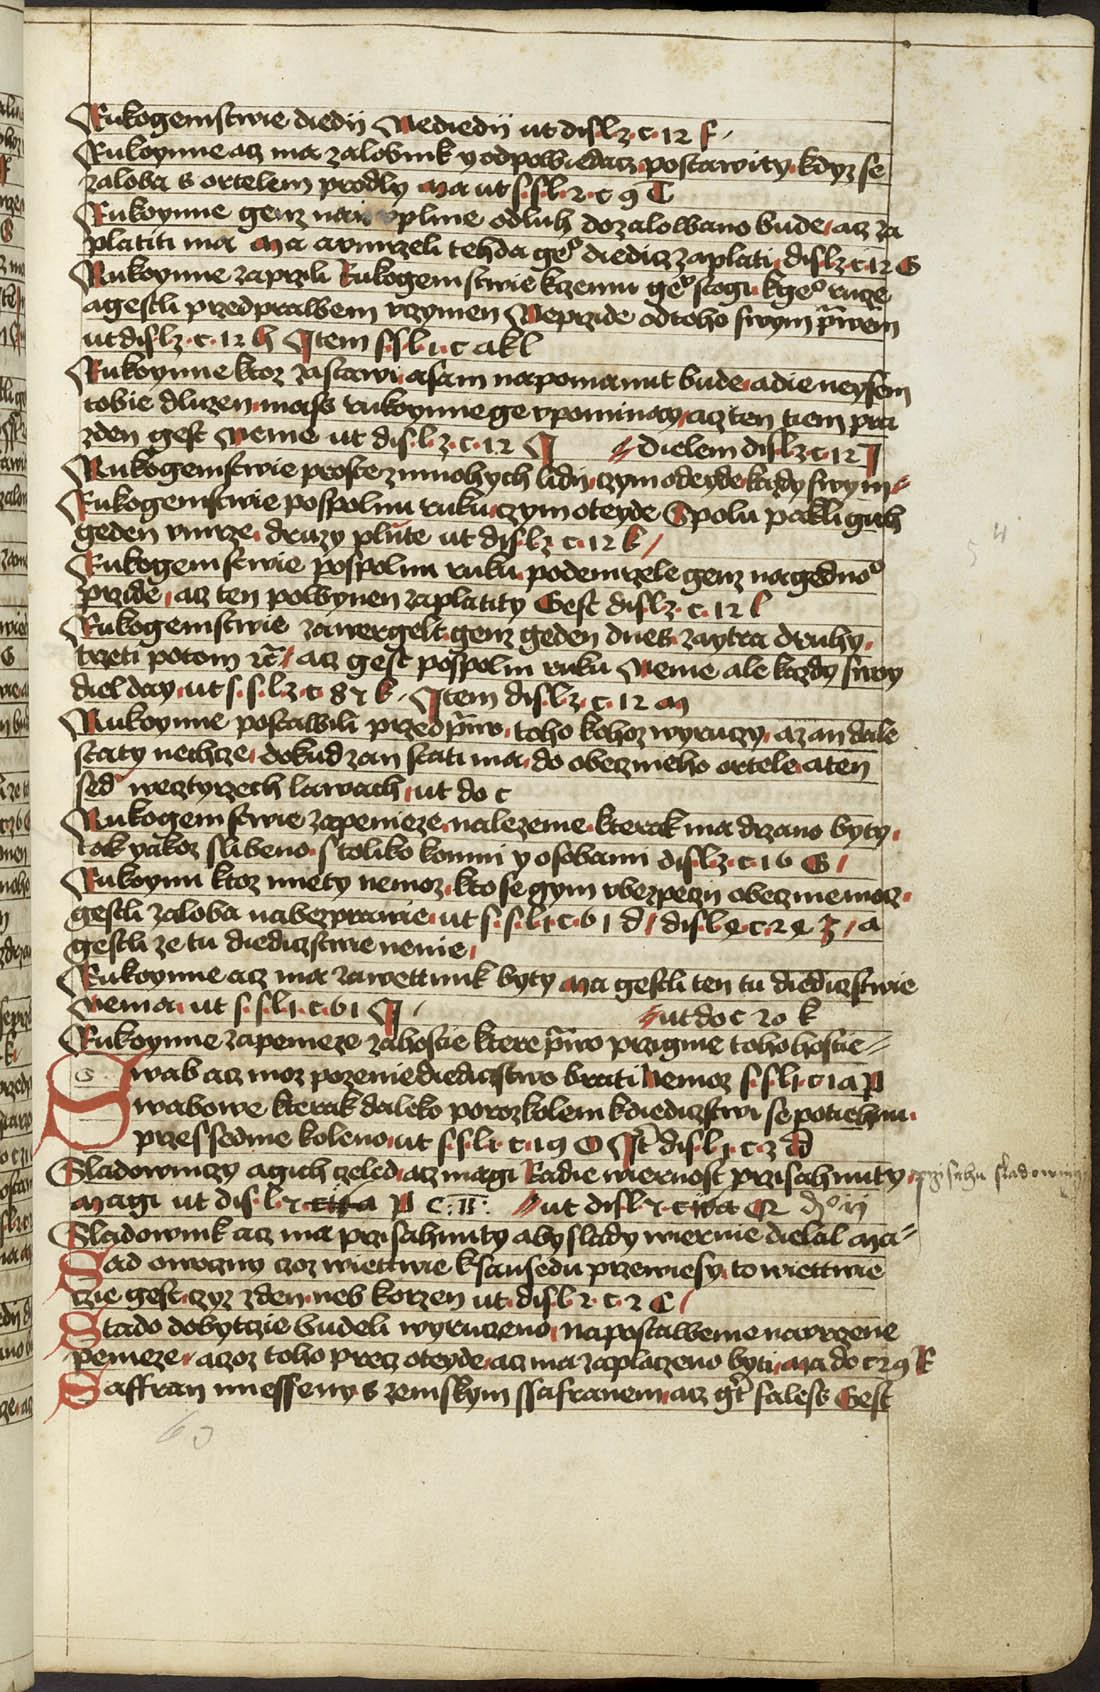 Rukogemstwie diedij Nediedij ut dis. l. z. c. 12 f
Rukoynne acz ma zalobnik y odpowiedacz postawity kdyz se
zaloba s ortelem prodly Ma ut s. s. l. 2. c 9 C
Rukoynne genz nan vpline odluh dozalowano bude acz za
platiti ma Ma a vmrzeli tehda geº diedicz zaplati dis l z. c. 12 G
Rukoynne zaprzli Rukogemstwie kczemu geº stogi kgeº rucze
agestli przed prawem vczymen Neprzide odtoho swym prwem
ut dis l z. c. 12 h Item s. s. l. 1. c akl
Rukoynne ktoz zastawi asam napomanut bude adie neysem
tobie dluzen mass rukoynne ge vpominay acz ten tiem pra
zden gest Neme ut dis. l. z. c. 12 I dielem dis l z c. 12 I
Rukogemstwie proste z mnohych lidij czym odeyde kazdy swym
Rukogemstwie pospolnu ruku czym oteyde Spolu pakli gich
geden vmrze druzy plnte ut dis l z c. 12 k
Rukogemstwie pospolnu ruku podemrzele genz nagednoº
przide acz ten powynen zaplatity Gest dis l z. c. 12 l
Rukogemstwie zawergelt genz geden dnes zaytra druhy
trzeti potom zc acz gest pospolnu ruku Neme ale kazdy swoy
diel day ut s. s. l. z. c. 87 k Item dis. l. z. c. 12 m
Rukoynne postawili przed prwo toho kohoz wyruczy az an dale
staty nechcze dokud zan stati ma do obeczneho ortele aten
sed weczyrzech lawach ut do c
Rukogemstwie zapenieze nalezeme kterak ma drzano byty
tak yakoz slibeno s toliko konmi y osobami dis l z. c. 16 G
Rukoymi ktoz miety nemoz kto se gym vbezpeczij obecz nemoz
gestli zaloba nabezprawie ut s. s. l. 1. c. 61 d dis. l. 4 c. 24 z a
gestli ze tu diediczstwie nenie
Rukoynne acz ma zawettnik byty Ma gestli ten tu diediczstwie
Nema ut s. s. l. 1. c. 61 I ut do c 20 k
Rukoynne zapenieze zahostie ktere prwo przigme toho hostie
Swab acz moz pozenie diediczstwo brati Nemoz s. s. l. 1. c 19 P
Swabowe kterak daleko porozkolem kdiediczstwi se potiehnu
przes sedme koleno ut s. s. l. 1. c. 19 O It dis. l. 1. c. z d
Sladowniczy a gich czeled acz magi Radie wiernost przisahnuty przisahu sladowniczy
Magi ut dis. l. 7. P c. II. ut dis l 7. c Q dº ij
Sladownik acz ma przisahnuty aby slady wiernie dielal Ma
Sad owoczny czoz wiettwie ksausedu przewiesy to wiettwie
czie gest czyz zden neb korzen ut dis l 2. c. 2 C
Stado dobytczie budeli wyruczeno na postawenie na vrczene
penieze a czoz toho precz oteyde acz ma zaplaczeno byti Ma do c 29 R
Saffran miesseny s zemskym ssafranem acz gt faless Gest